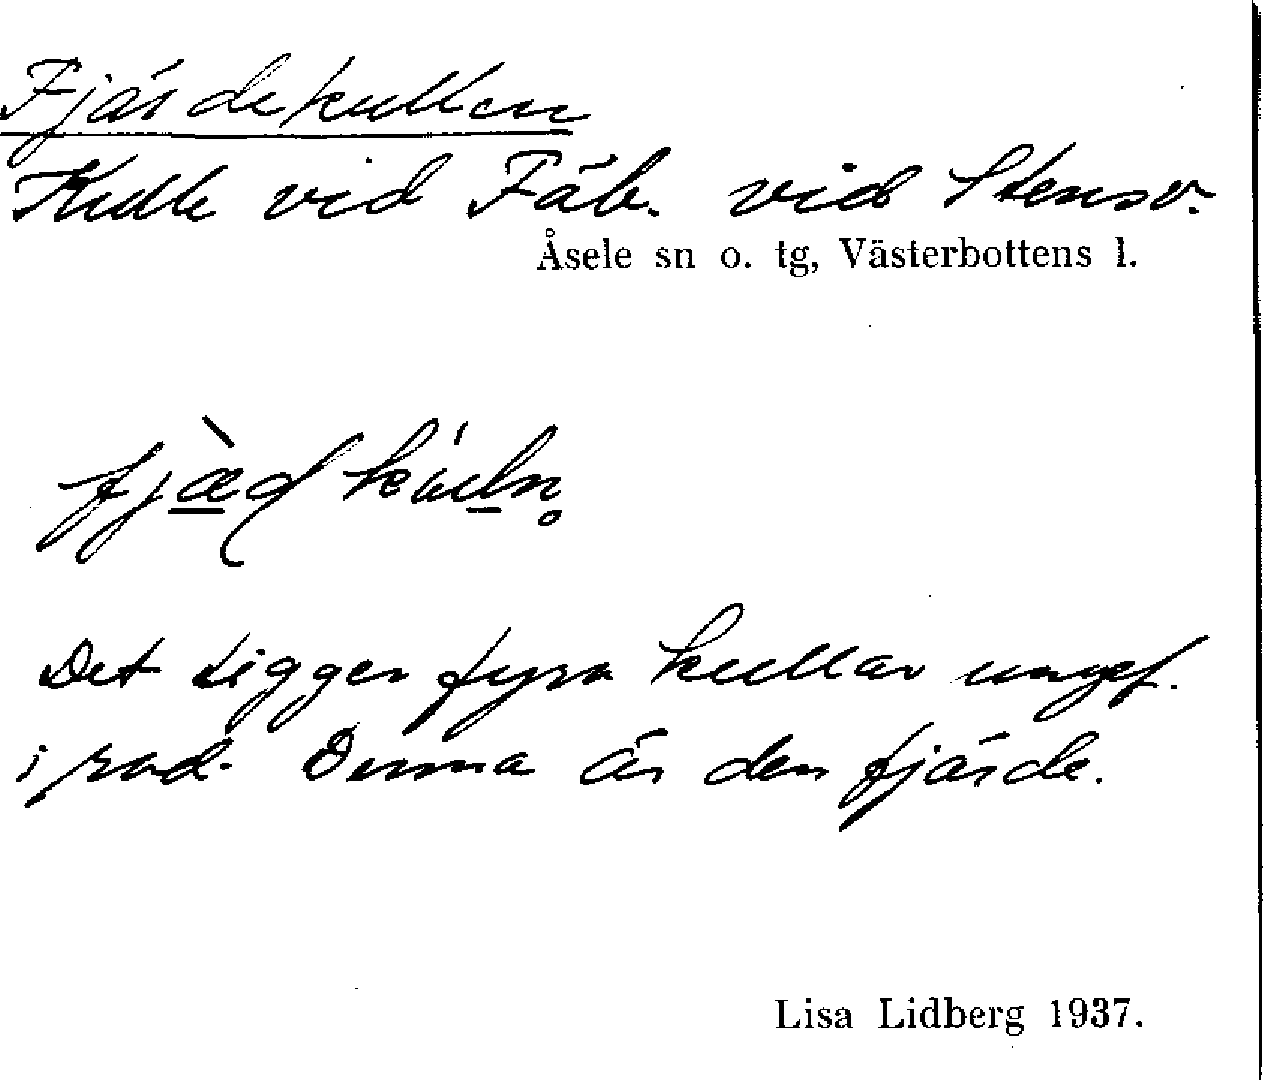 Fjärdekullen
Kulle vid Fäb. vid Stensv.
Åsele sn o. tg, Västerbottens l.
Det ligger fyra kullar ungef.
i rad. Denna är den fjärde.
Lisa Lidberg 1937.